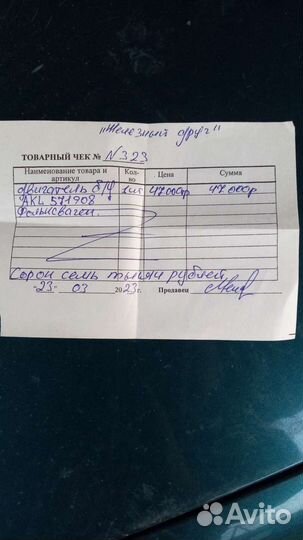 "Железный друг"
ТОВАРНЫЙ ЧЕК № N323
Наименование товара и артикул Кол-во Цена Сумма
двигатель б/у 1шт 47000р 47000р
AKL 571908
Фольксваген.
Сорок семь тысяч рублей
-23- 03 2023г. Продавец
Avito